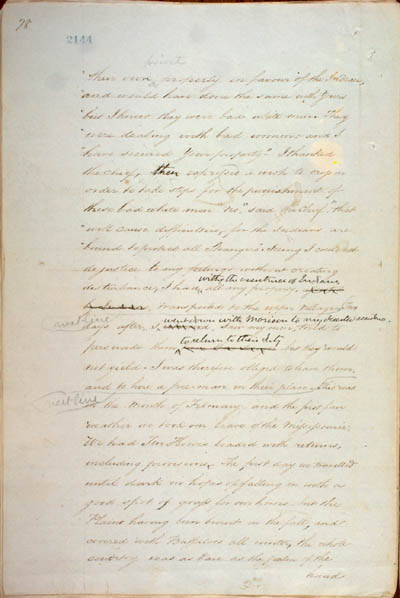 78
2144
private
"their own property in favour of the Indians,
"and would have done the same with yours
"but I knew they were bad white men. They
"were dealing with bad women and I
"have secured your property" I thanked
the chief, then expressed a wish to stop in
order to take steps for the punishment of
these bad white men "No" said the Chief "that
"will cause difficulties, for the Indians are
"bound to protect all Strangers. Seeing I could not
do justice to my feelings without creating
disturbances, I had with the assistance of Indians all my property,
transported to the upper village. A few
days after, I went down with Morrison to my deserters
next line
saw my men, tried to
persuade them to return to their duty but they would
not yield. I was therefore obliged to leave them,
and to hire a free man in their place. This was
next line
in the month of February and the first fair
weather we took our leave of the Missouri.
We had Ten Horses loaded with returns,
including provisions. The first day we travelled
until dark in hopes of falling in with a
good spot of grass for our horses but the
Plains having been burnt in the fall, and
covered with Buffaloes all winter, the whole
country was as bare as the palm of the
hand